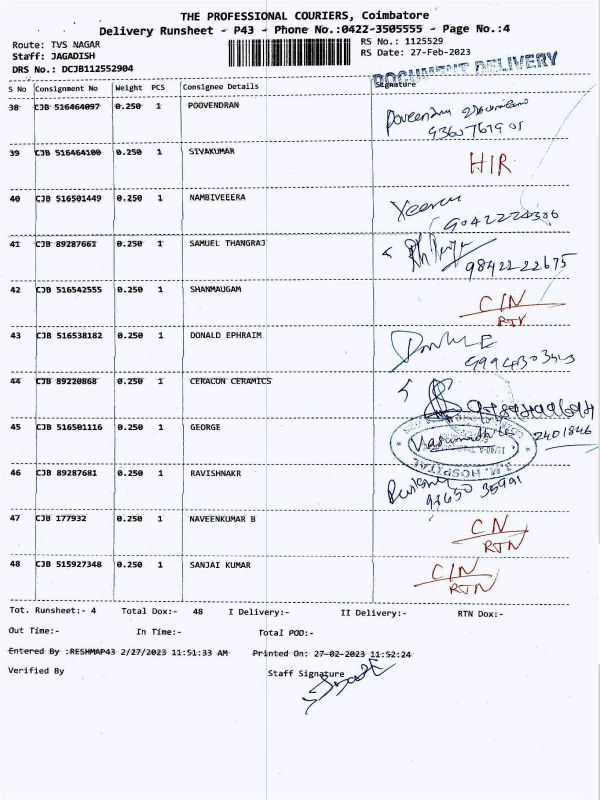 THE PROFESSIONAL COURIERS, Coimbatore
Delivery Runsheet - P43 - Phone No.:0422-3505555 - Page No.:4
Route: TVS NAGAR RS No.: 1125529
Staff: JAGADISH RS Date: 27-Feb-2023
DRS No.: DCJB112552904
DOCUMENT DELIVERY
S No Consignment No Weight PCS Consignee Details Signature
38 CJB 516464097 0.250 1 POOVENDRAN Poovendran
39 CJB 516464100 0.250 1 SIVAKUMAR HIR
40 CJB 516501449 0.250 1 NAMBIVEEERA
9042224306
41 CJB 89287661 0.250 1 SAMUEL THANGRAJ
98422 22675
42 CJB 516542555 0.250 1 SHANMAUGAM C/N
RTN
43 CJB 516538182 0.250 1 DONALD EPHRAIM
44 CJB 89220868 0.250 1 CERACON CERAMICS
45 CJB 516501116 0.250 1 GEORGE 2401846
HOSPITAL
46 CJB 89287681 0.250 1 RAVISHNAKR
47 CJB 177932 0.250 1 NAVEENKUMAR B CN
RTN
48 CJB 515927348 0.250 1 SANJAI KUMAR C/N
RTN
Tot. Runsheet:- 4 Total Dox:- 48 I Delivery:- II Delivery:- RTN Dox:-
Out Time:- In Time:- Total POD:-
Entered By :RESHMAP43 2/27/2023 11:51:33 AM Printed On: 27-02-2023 11:52:24
Verified By Staff Signature